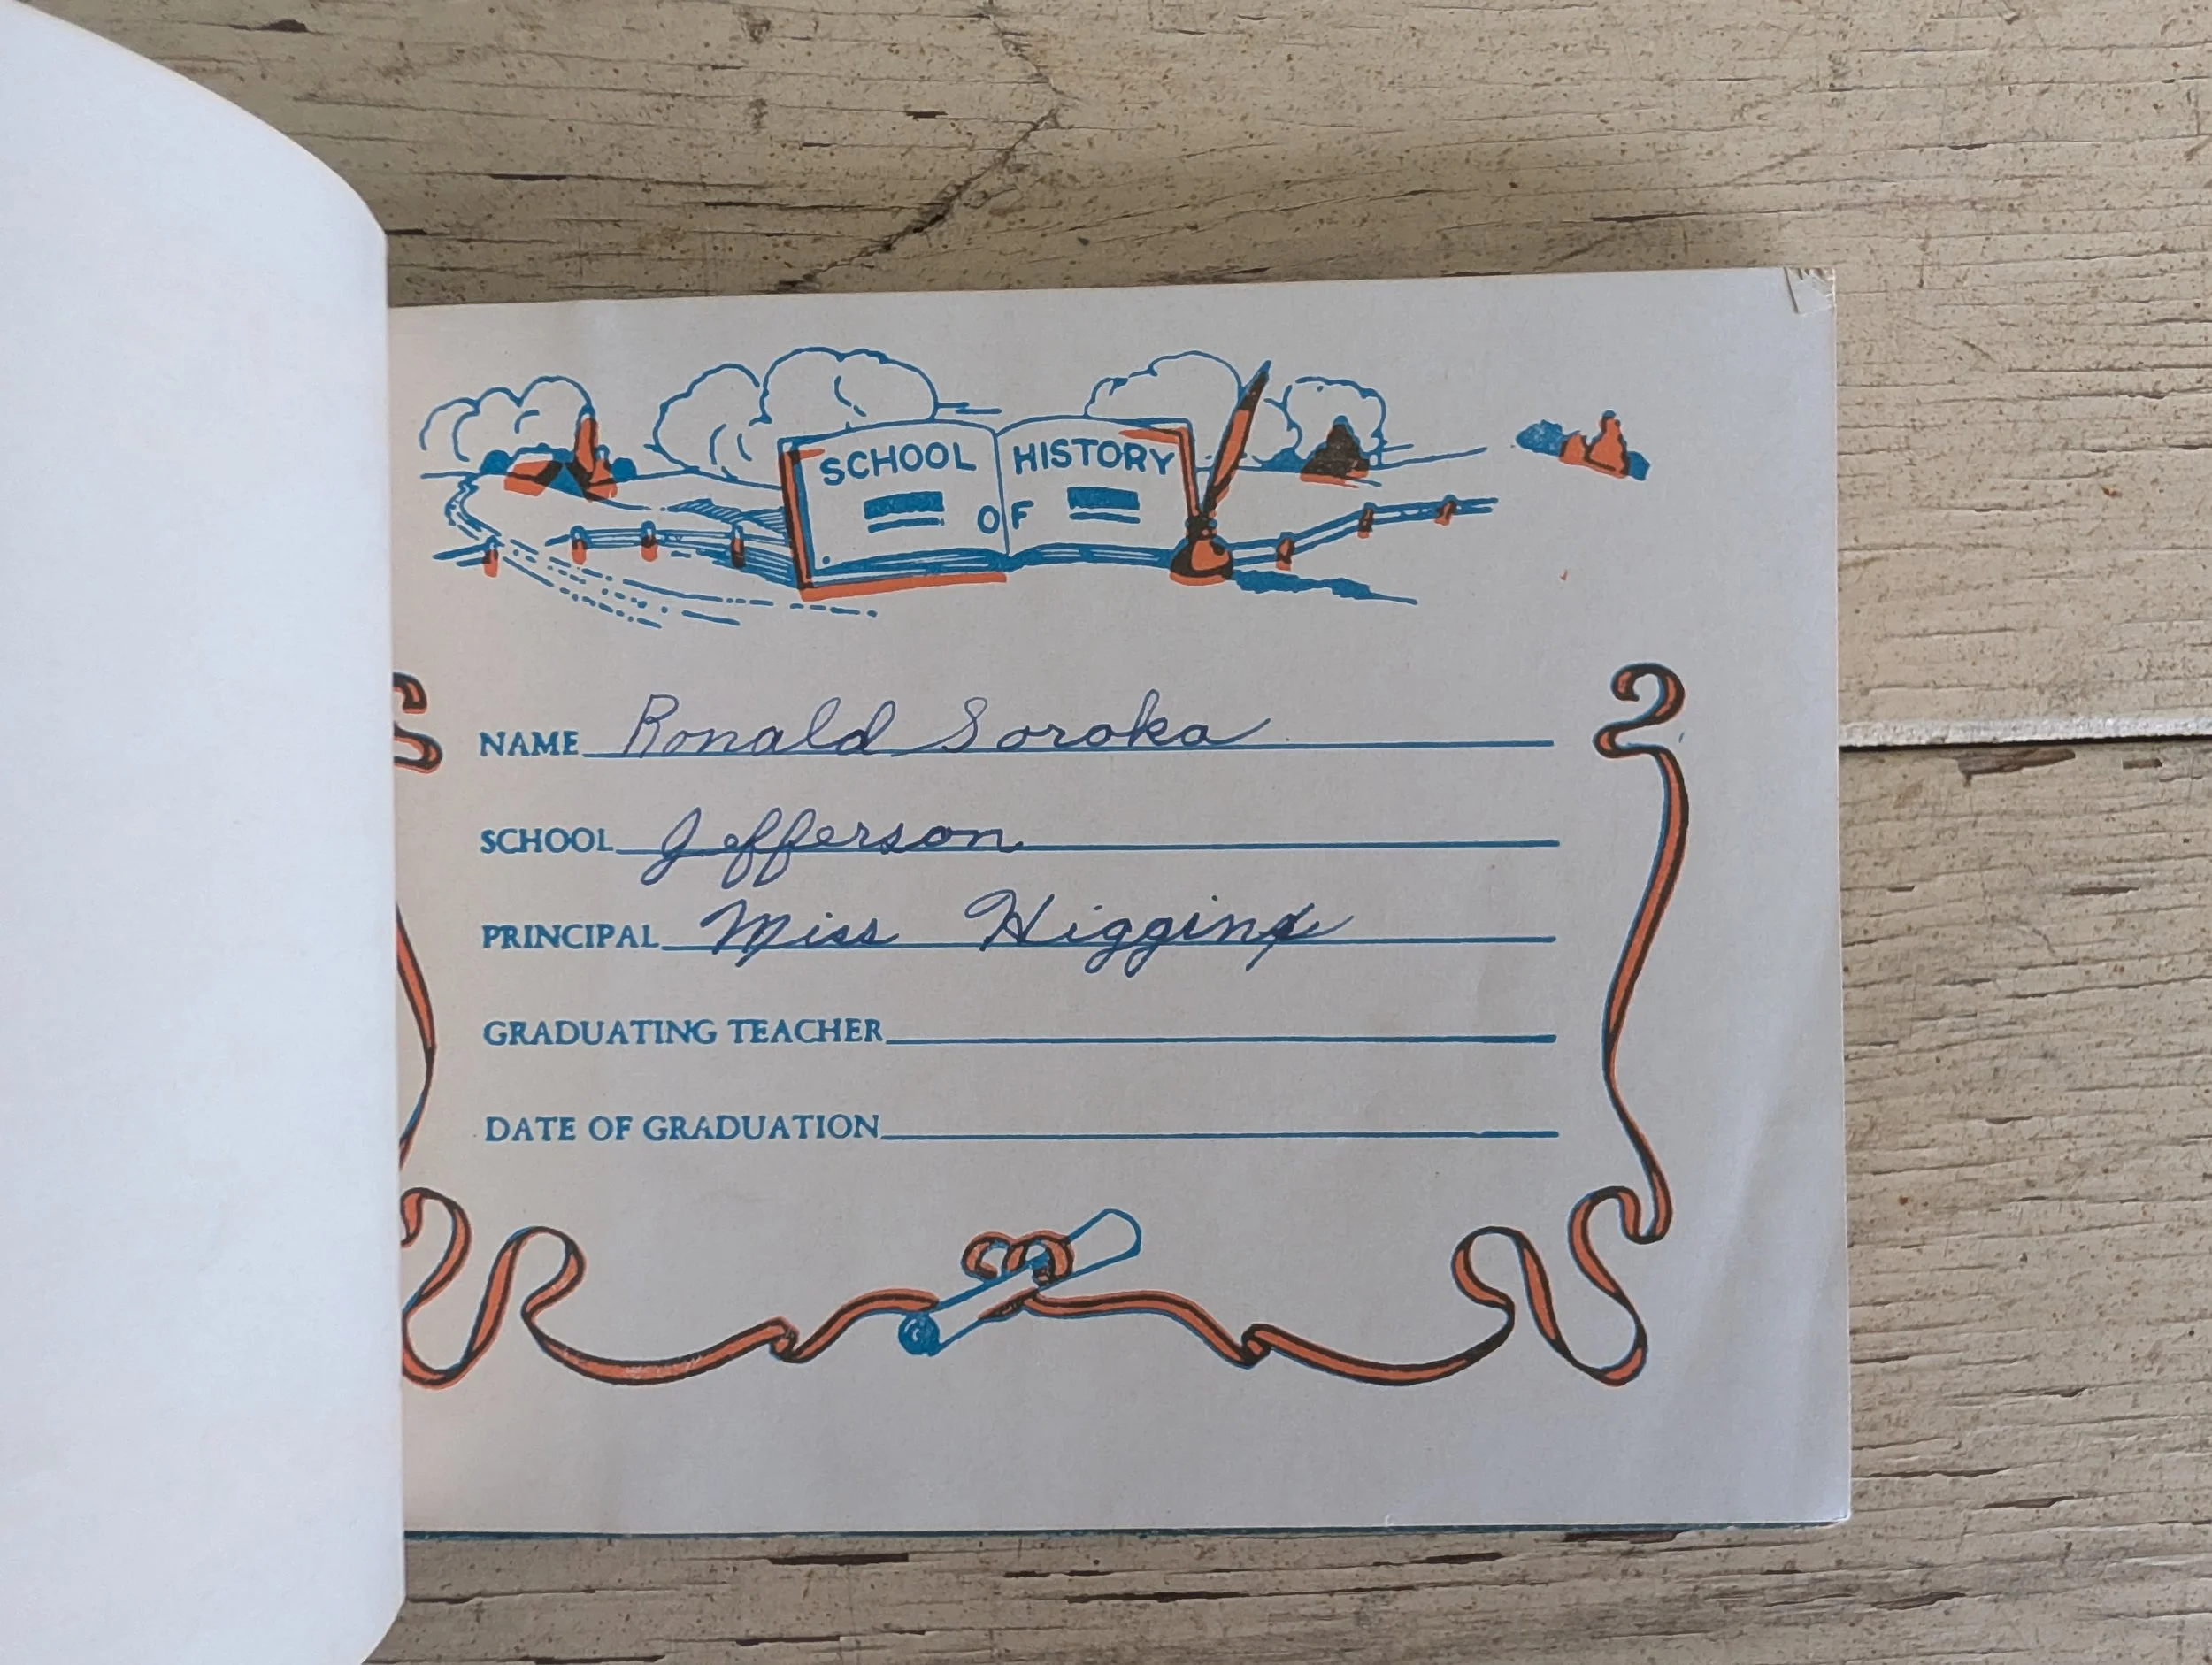 SCHOOL HISTORY
OF
NAME Ronald Soroka
SCHOOL Jefferson
PRINCIPAL Miss Higgins
GRADUATING TEACHER
DATE OF GRADUATION